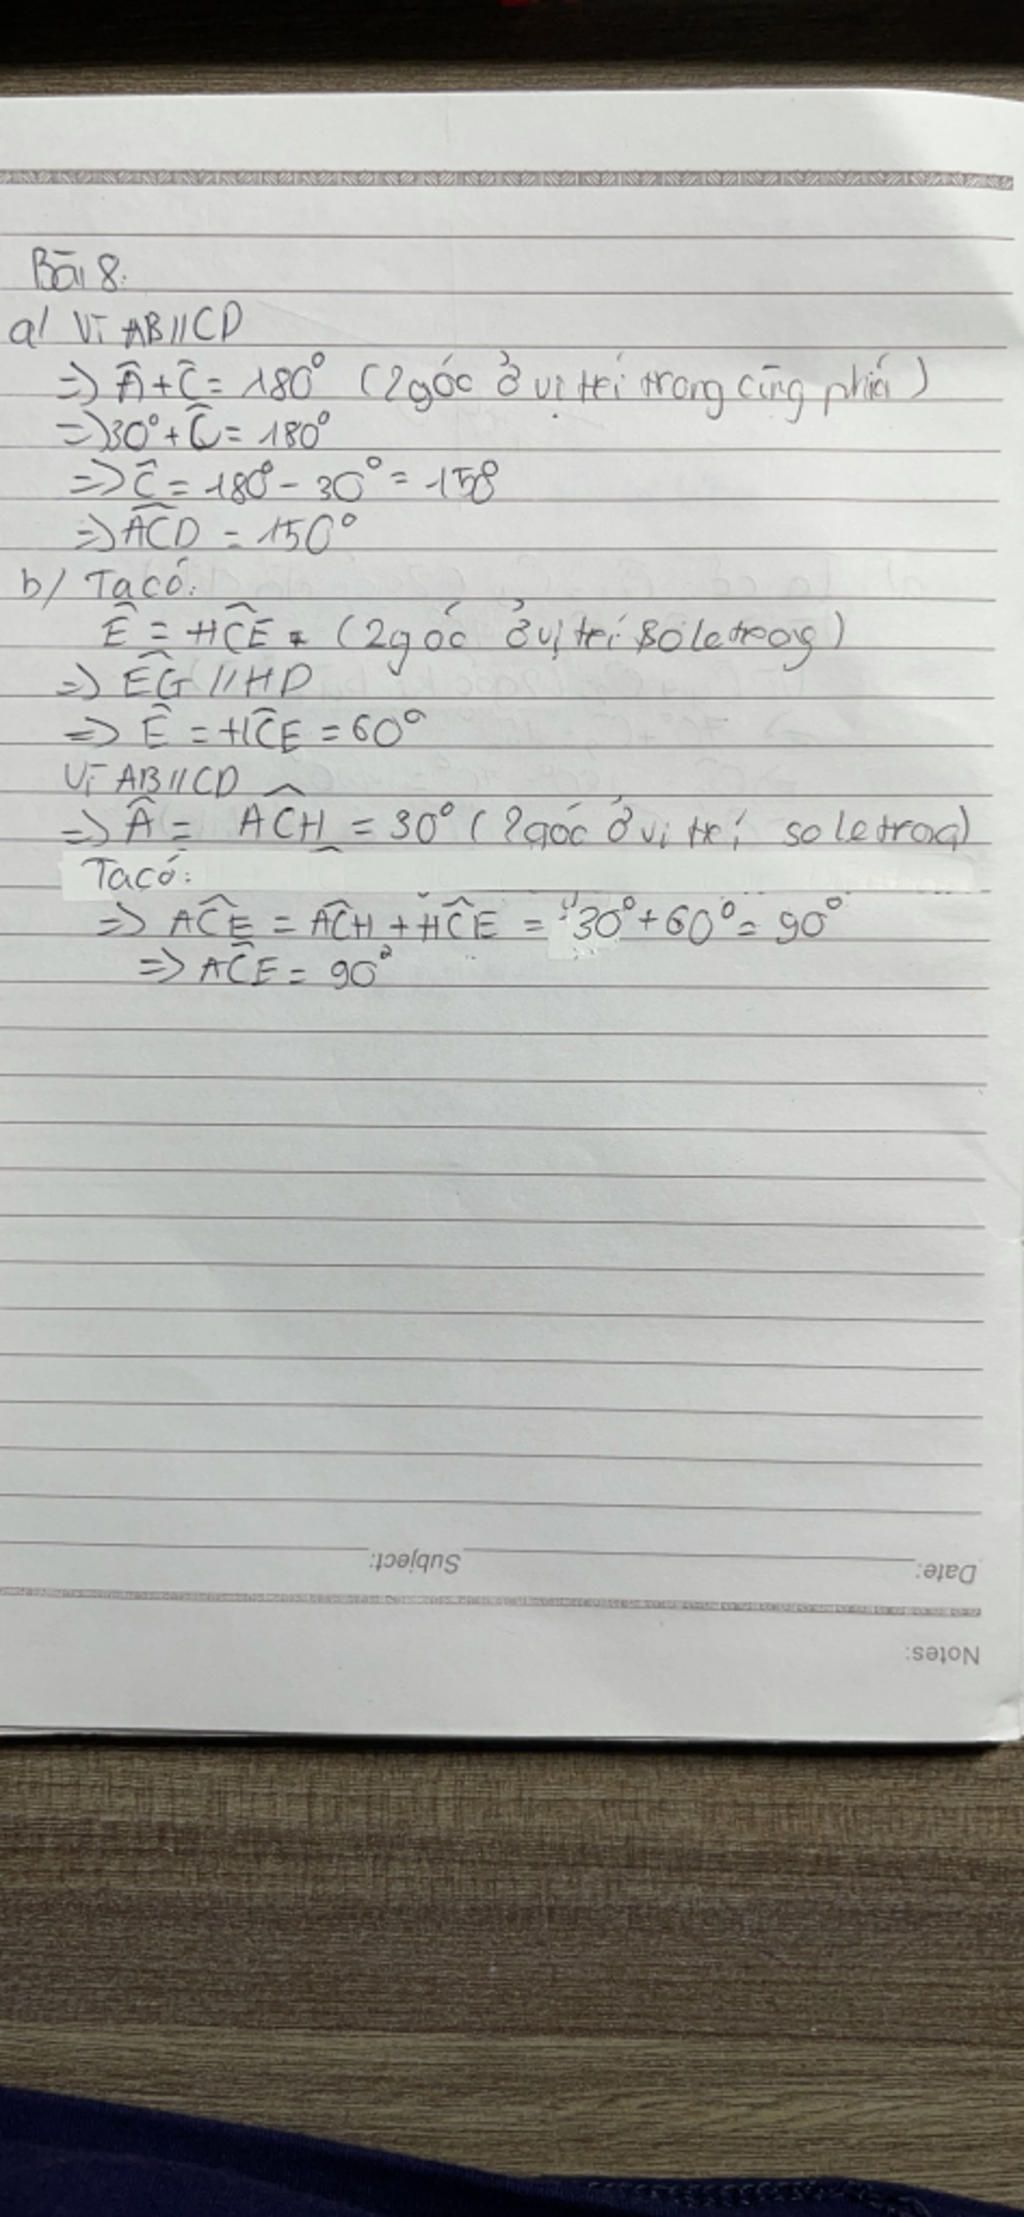 Bài 8.
a/ Vì AB//CD
=> Â + Ĉ = 180° (2 góc ở vị trí trong cùng phía)
=> 30° + Ĉ = 180°
=> Ĉ = 180° - 30° = 150
=> ACD = 150°
b/ Ta có:
Ê = HĈE (2 góc ở vị trí so le trong)
=> EG // HD
=> Ê = HĈE = 60°
Vì AB//CD
=> Â = ACH = 30° (2 góc ở vị trí so le trog)
Ta có:
=> AĈE = AĈH + HĈE = 30° + 60° = 90°
=> AĈE = 90°
Date: Subject:
Notes: